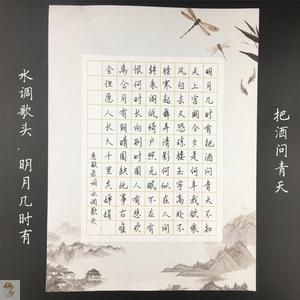 把酒问青天
明月几时有把酒问青天不知
天上宫阙今夕是何年我欲乘
风归去又恐琼楼玉宇高处不
胜寒起舞弄清影何似在人间
转朱阁低绮户照无眠不应有
恨何事长向别时圆人有悲欢
离合月有阴晴圆缺此事古难
全但愿人长久千里共婵娟
词水调歌头
水调歌头·明月几时有